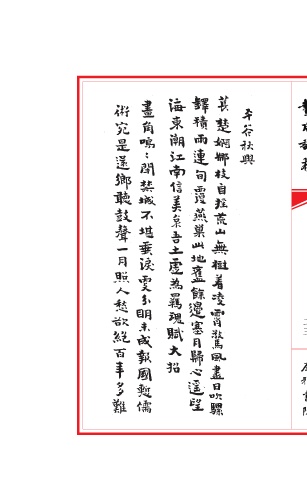 平谷秋興
萇楚婀娜枝自捨荒山無樹着凌霄驚風盡日吹騾
驛積雨連旬覆燕巢此地舊餘邊塞月歸心遥望
海東潮江南信美吾土虛為羈魂賦大招
畫角鳴：閉禁城不堪垂淚分明未成報國慙儒
術究是還鄉聽鼓聲一月照人愁欲絕百事多難